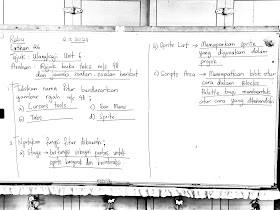 Rabu
Latihan 26
Tajuk : Ulangkaji Unit 6
Arahan : Rujuk buku teks m/s 98
dan jawab soalan-soalan berikut
1. Tuliskan nama fitur berdasarkan
gambar rajah m/s 98 :
a) Cursor tools c) Bar Menu
b) Tabs d) Sprite
2. Nyatakan fungsi fitur dibawah :
a) Stage → berfungsi sebagai pentas untuk
sprite bergerak dan berinteraksi
b) Sprite List → Memaparkan sprite
yang digunakan dalam
projek
c) Scripts Area → Memaparkan blok atur
cara dalam Blocks
Palette bagi membentuk
atur cara yang dikehendaki